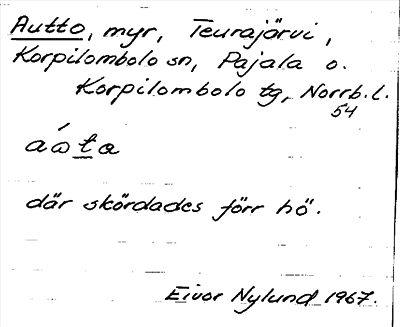 Autto, myr, Teurajärvi,
Korpilombolo sn, Pajala o.
Korpilombolo tg, Norrb. l.
54
áωt̲a
där skördades förr hö.
Eivor Nylund 1967.